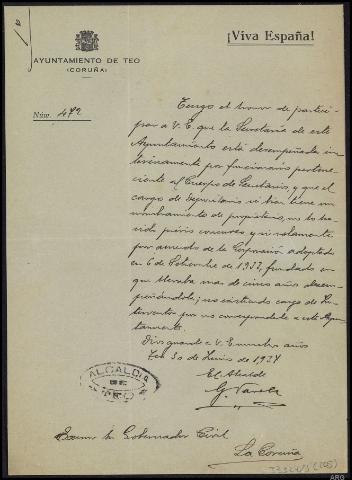 ¡Viva España!
AYUNTAMIENTO DE TEO
(CORUÑA)
Núm. 472
Tengo el honor de partici-
par a V. E. que la Secretaría de este
Ayuntamiento está desempeñada in-
terinamente por funcionario pertene-
ciente al Cuerpo de Secretarios, y que el
cargo de Depositario si bien tiene un
nombramiento de propietario, no lo ha
sido previo concurso y si solamente
por acuerdo de la Corporación adoptado
en 6 de Setiembre de 1932, fundado en
que llevaba mas de cinco años desem-
peñándolo; no existiendo cargo de In-
terventor por no corresponderle a este Ayun-
tamiento.
Dios guarde a V. E. muchos años
Teo 30 de Junio de 1937
El Alcalde
G. Varela
ALCALDIA
DE
TEO
Excmo Sr. Gobernador Civil
La Coruña
ARG